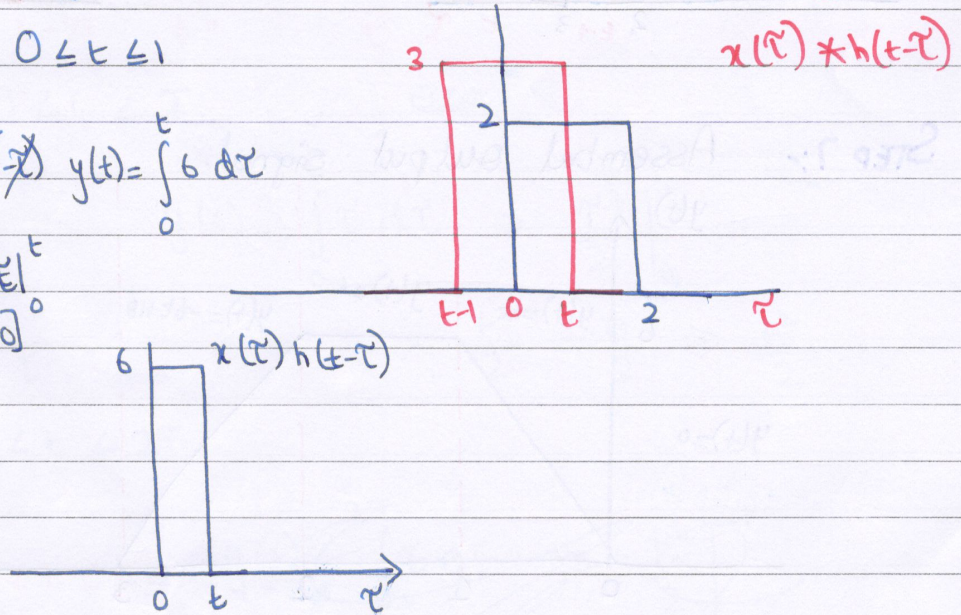 0 ≤ t ≤ 1
x(τ) * h(t-τ)
3
2
y(t) = ∫₀ᵗ 6 dτ
t-1 0 t 2 τ
τ|₀ᵗ
0]
6 x(τ) h(t-τ)
0 t τ